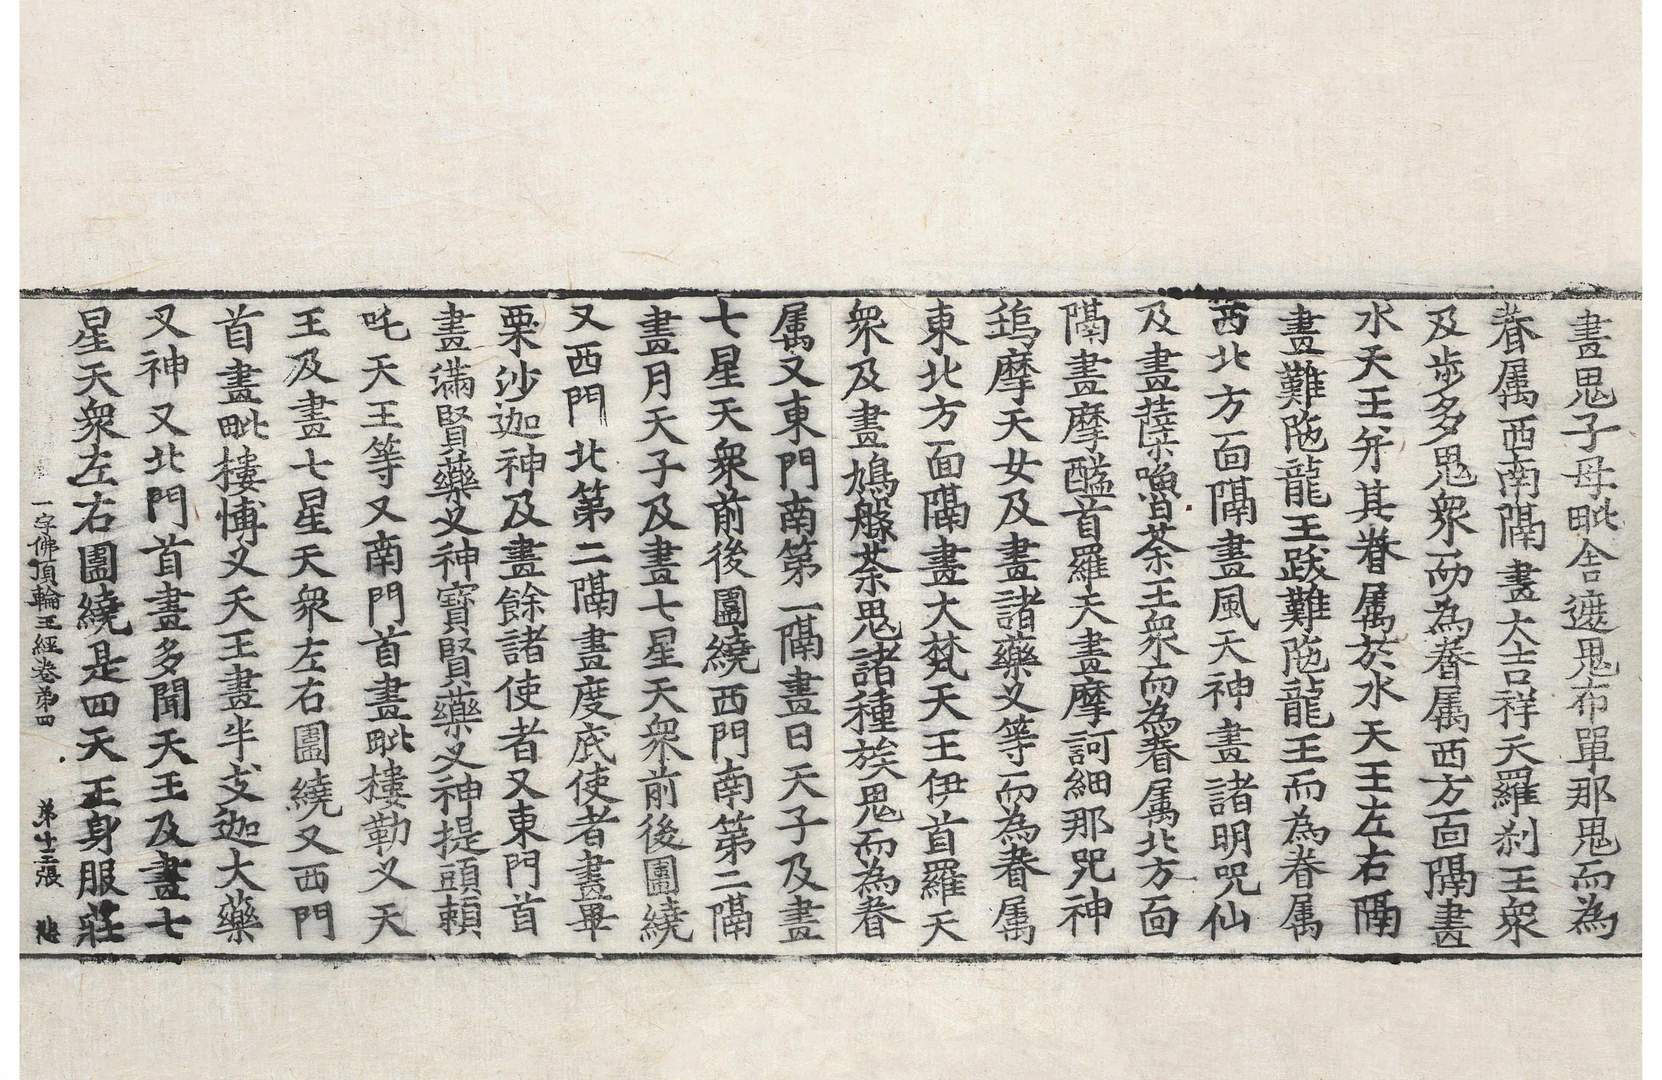 畫鬼子母毗舎遮鬼布單那鬼而為
眷属西南隔畫大吉祥天羅刹王衆
及步多鬼衆而為眷属西方面隔畫
水天王并其眷属於水天王左右隔
畫難陁龍王跋難陁龍王而為眷属
西北方面隔畫風天神畫諸明呪仙
及畫薩㗚嚕荼王衆而為眷属北方面
隔畫摩醯首羅天畫摩訶細那呪神
塢摩天女及畫諸藥叉等而為眷属
東北方面隔畫大梵天王伊首羅天
衆及畫鳩槃荼鬼諸種族鬼而為眷
属又東門南第一隔畫日天子及畫
七星天衆前後圍繞西門南第二隔
畫月天子及畫七星天衆前後圍繞
又西門北第二隔畫度底使者畫畢
栗沙迦神及畫餘諸使者又東門首
畫滿賢藥叉神寶賢藥叉神提頭頼
吒天王等又南門首畫毗樓勒叉天
王及畫七星天衆左右圍繞又西門
首畫毗樓博叉天王畫半支迦大藥
叉神又北門首畫多聞天王及畫七
星天衆左右圍繞是四天王身服莊
一字佛頂輪王經卷弟四 弟十三張